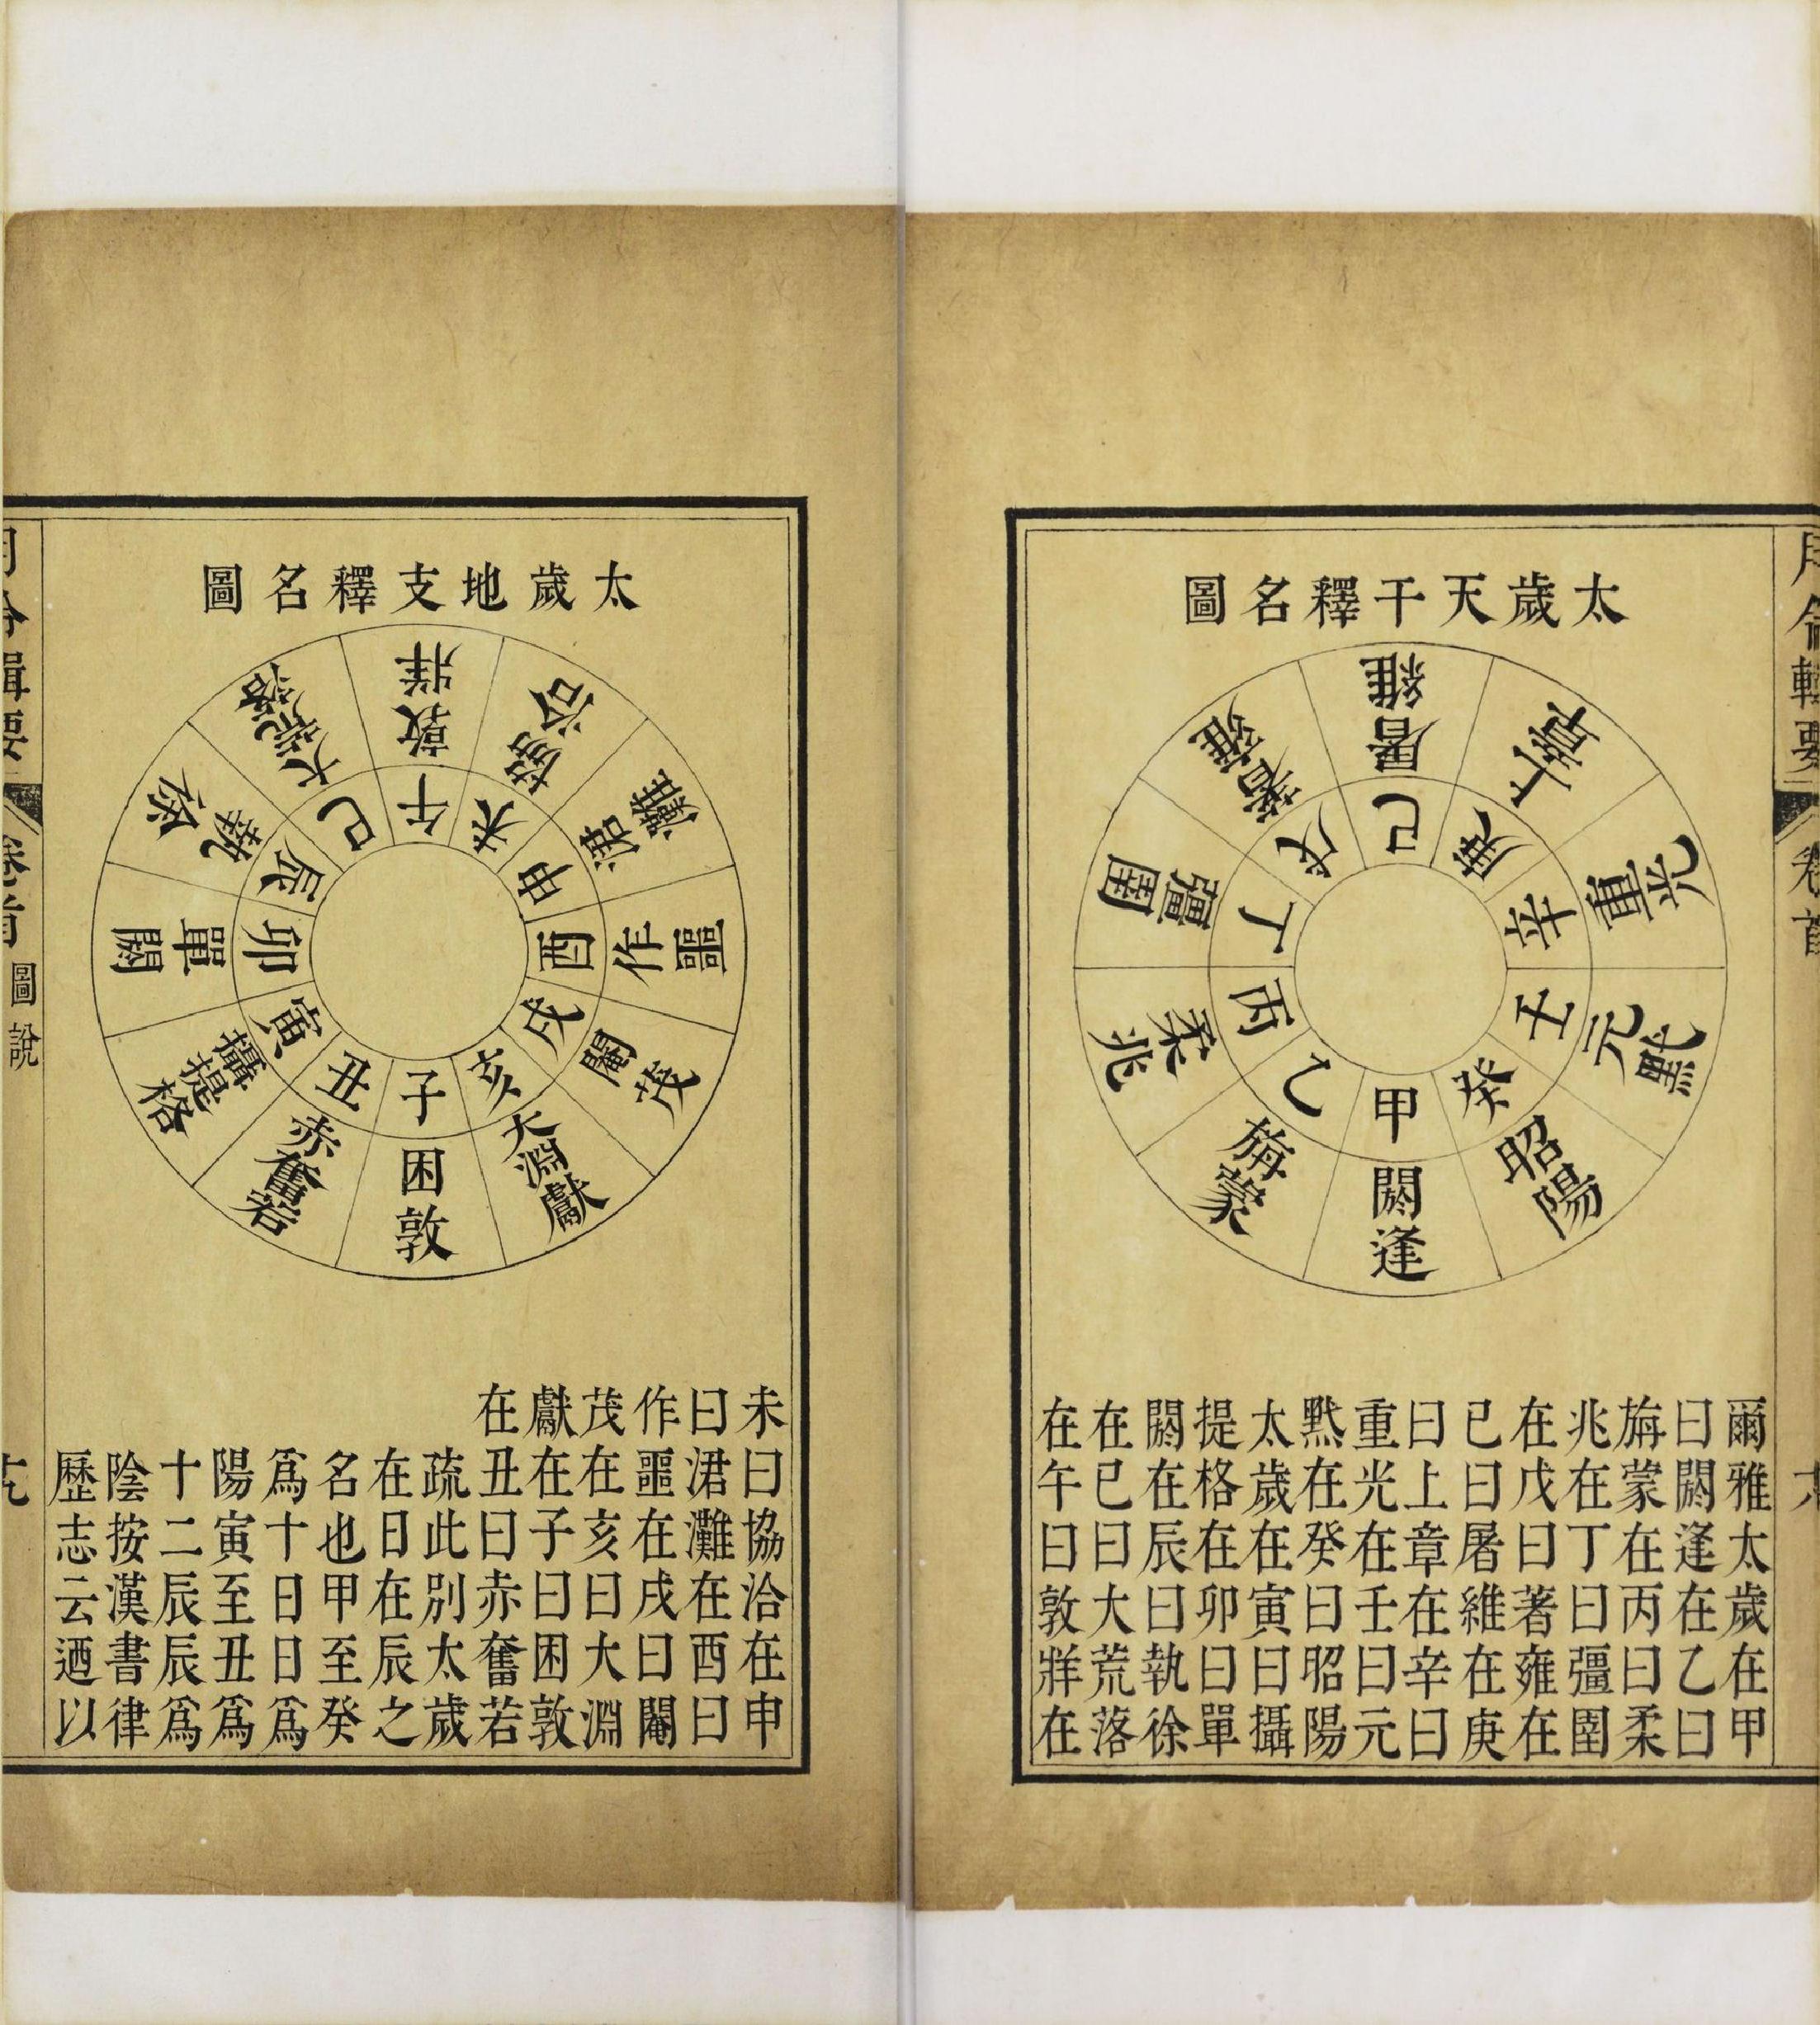 太歲天干釋名圖
甲
閼逢
乙
旃蒙
丙
柔兆
丁
彊圉
戊
著雍
己
屠維
庚
上章
辛
重光
壬
元黓
癸
昭陽
爾雅太歲在甲
曰閼逢在乙曰
旃蒙在丙曰柔
兆在丁曰彊圉
在戊曰著雍在
己曰屠維在庚
曰上章在辛曰
重光在壬曰元
黓在癸曰昭陽
太歲在寅曰攝
提格在卯曰單
閼在辰曰執徐
在巳曰大荒落
在午曰敦牂在
太歲地支釋名圖
子
困敦
丑
赤奮若
寅
攝提格
卯
單閼
辰
執徐
巳
大荒落
午
敦牂
未
協洽
申
涒灘
酉
作噩
戌
閹茂
亥
大淵獻
未曰協洽在申
曰涒灘在酉曰
作噩在戌曰閹
茂在亥曰大淵
獻在子曰困敦
在丑曰赤奮若
疏此別太歲
在日在辰之
名也甲至癸
爲十日日爲
陽寅至丑爲
十二辰辰爲
陰按漢書律
歷志云迺以
圖說